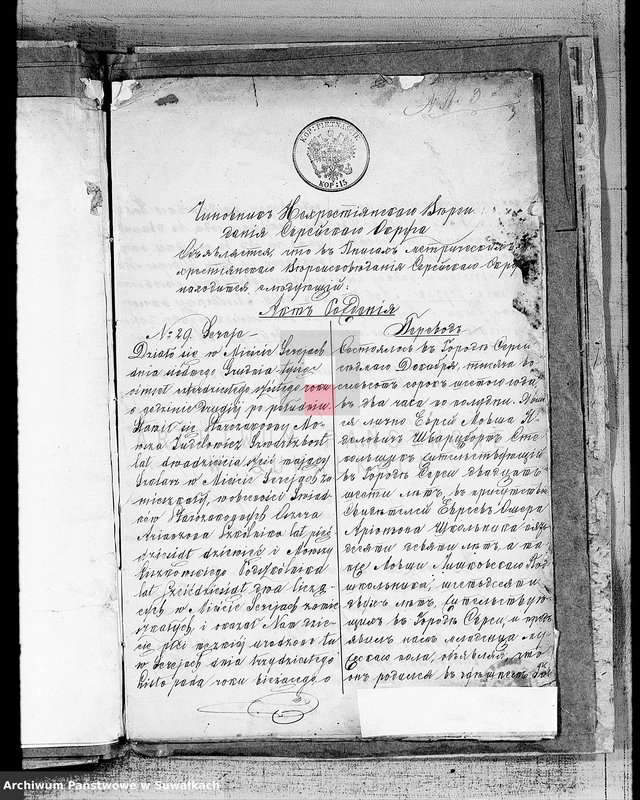 КОП: ПЯТНАДЦ.
КОП: 15
№ А. 3
Чиновникъ Нехристіянскаго Вѣроис-
данія Серейскаго Округа
Объявляетъ, что въ Книгѣ метрической
нехристіянскаго Вѣроисповѣданія Серейскаго Окру
находится слѣдующій:
Актъ Рожденія
№ 29 Sereje
Działo się w Mieście Serejach
dnia siódmego Grudnia tysiąc
ośmset czterdziestego szóstego roku
o godzinie drugiej po południu.
Stawił się Starozakonny Mo-
wsza Judelowicz Szwarcbort
Stolarz
w Mieście Serejach za
mieszkały, w obecności Świad
ków Starozakonnych Oszera
Arionowa Szkolnika lat pięć
dziesiąt dziewięć i Mowszy
Liszkowskiego Podszkolnika
lat sześćdziesiąt dwa liczą
cych w Mieście Serejach zamie
szkałych i okazał Nam dzie
cię płci męzkiej urodzone tu
w Serejach dnia trzydziestego
Listopada roku bieżącego o
Переводъ
Состоялось въ Городѣ Сереи
седьмаго Декабря, тысяча во
семьсотъ сорокъ шестаго года,
въ два часа по полудни. Явил
ся лично Еврей Мовша Ю
деловичъ Шварцбортъ Сто
кительствующій
въ Городѣ Сереи двадцать
шести лѣтъ, въ присутствіи
Свидѣтелей Евреевъ Ошера
Аріонова Школьника пять
десяти девяти лѣтъ а та
кже Мовши Лишковскаго Под
школьника, шестьдесяти
двухъ лѣтъ, жительствую
щихъ въ Городѣ Сереи, и предъ
явилъ намъ младенца му
жескаго пола, объявляя, что
онъ родился въ здѣшнемъ Го
Archiwum Państwowe w Suwałkach